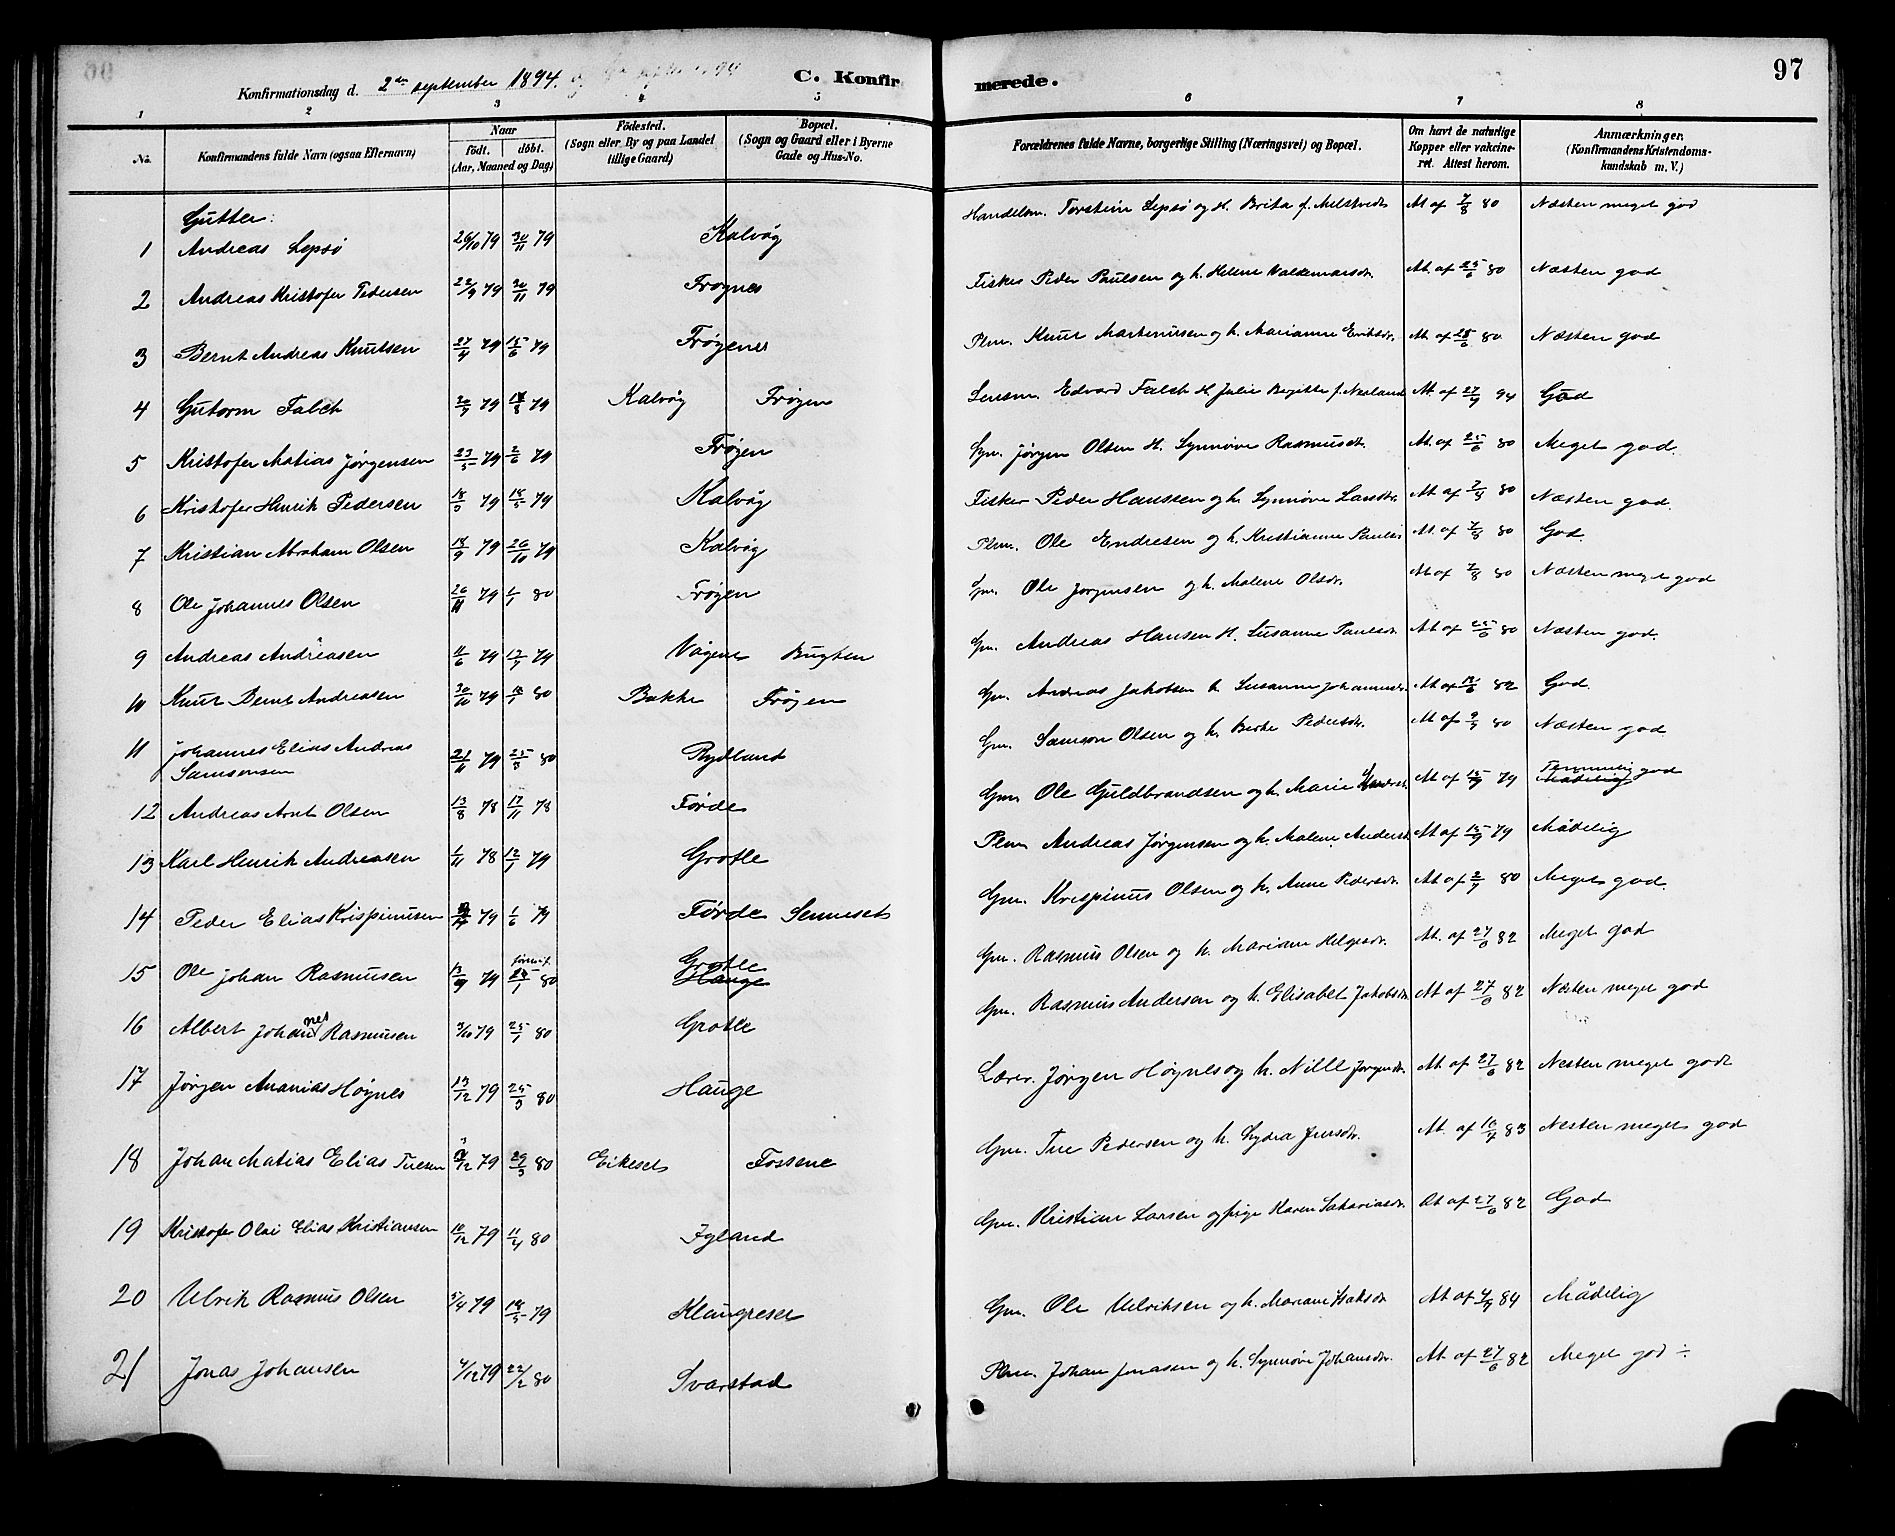 97
Konfirmationsdag d. 2den september 1894.
C. Konfirmerede.
1 2 3 4 5 6 7 8
No. Konfirmandens fulde Navn (ogsaa Efternavn) Naar födt. döbt. (Aar, Maaned og Dag) Födested. (Sogn eller By og paa Landet tillige Gaard) Bopæl. (Sogn og Gaard eller i Byerne Gade og Hus-No. Forældrenes fulde Navne, borgerlige Stilling (Næringsvei) og Bopæl. Om havt de naturlige Kopper eller vakcineret. Attest herom. Anmærkninger. (Konfirmandens Kristendomskundskab m. V.)
Gutter:
1 Andreas Lepsø 26/10 79 30/11 79 Kalvåg Handelsm. Torstein Lepsø og H. Brita f. At af 7/8 80 Næsten meget god
2 Andreas Kristofer Pedersen 22/9 79 30/11 79 Frøynes Fisker Peder Paulsen og h. Helene Valdemarsdr. At. af 25/6 80 Næsten god
3 Bernt Andreas Knutsen 27/4 79 15/6 79 Frøyenes Plm. Knut Martenusen og h. Marianne Eriksdr. At. af 25/6 80 Næsten god
4 Gutorm Falch 20/7 79 79 Kalvåg Frøyen Lensm. Edvard Falch H. Julie Birgitte f. Nealand At. af 27/4 94 God
5 Kristofer Matias Jørgensen 23/5 79 2/6 79 Frøyen Gm. Jørgen Olsen H. Synnøve Rasmusdt. At. af 25/6 80 Meget god.
6 Kristofer Henrik Pedersen 18/3 79 18/5 79 Kalvåg Fisker Peder Hanssen og h. Synnøve Larsdr. At af 7/8 80 Næsten god.
7 Kristian Abraham Olsen 18/9 79 26/10 79 Kalvåg Plm. Ole Endresen og h. Kristianne Pauls. At. af 7/8 80 God.
8 Ole Johannes Olsen 26/11 79 1/1 80 Frøyen Gm. Ole Jørgensen og h. Malene Olsdr. At af 7/8 80 Næsten meget god
9 Andreas Andreasen 11/6 79 13/7 79 Vågene Bugten Gm. Andreas Hansen H. Susanne Paulsdr. At af 25/6 80 Næsten god.
10 Knut Bernt Andreasen 30/10 79 18/1 80 Bakke Frøyen Gm. Andreas Jakobsen h. Susanne Johannesdr. At af 82 God.
11 Johannes Elias Andreas Samsonsen 21/11 79 25/3 80 Rydland Gm. Samson Olsen og h. Berte Pedersdr. At af 80 Næsten god
12 Andreas Arnt Olsen 13/8 78 17/11 78 Førde Gm. Ole Guldbrandsen og h. Marie At af 15/9 79 Temmelig god
13 Karl Henrik Andreasen 1/11 78 12/1 79 Grotle Plm. Andreas Jørgensen og h. Malene Andersd. At af 15/9 79 Mådelig
14 Peder Elias Krispinusen 79 1/6 79 Førde Senneset Gm. Krispinus Olsen og h. Anne Pedersdr. At. af 80 Meget god.
15 Ole Johan Rasmusen 13/9 79 25/1 80 Grotle Hauge Gm. Rasmus Olsen og h. Mariane Helgesdr. At. af 27/6 82 Meget god
16 Albert Johannes Rasmusen 3/10 79 25/1 80 Grotle Gm. Rasmus Anderson og h. Elisabet Jakobsdr. At af 27/6 82 Næsten meget god
17 Jørgen Ananias Høynes 13/12 79 25/3 80 Hauge Lærer. Jørgen Høynes og h. Nille Jørgensdr. At. af 27/6 82 Næsten meget godt
18 Johan Matias Elias Tuesen 79 29/3 80 Eikeset Fossene Gm. Tue Pedersen og h. Lydia Jensdr. At. af 10/7 83 Nesten meget god
19 Kristofer Olai Elias Kristiansen 10/12 79 11/4 80 Igland Gm. Kristian Larsen og pige Karen Sakariasdr. At af 27/6 82 God
20 Ulrik Rasmus Olsen 5/4 79 18/5 79 Klaugreset Gm. Ole Ulriksen og h. Mariane Isaksdr At af 4/9 84 Mådelig
21 Jonas Johansen 4/12 79 22/2 80 Svarstad Plm. Johan Jonassen og h. Synnøve Johansdr. At af 27/6 82 Meget god ÷